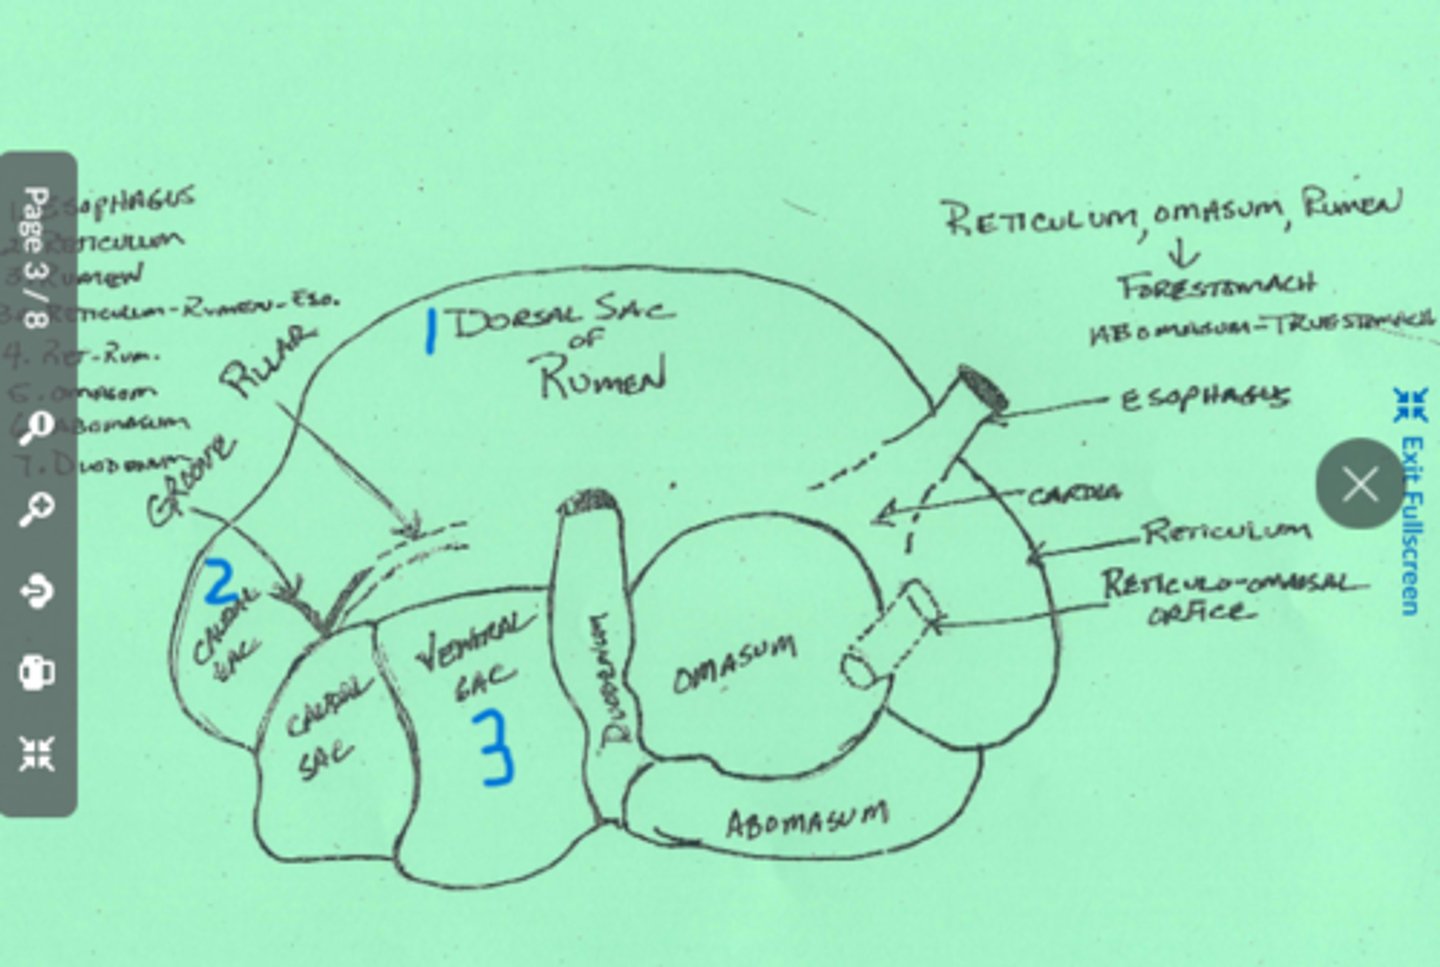 Page 3 / 8
1. ESOPHAGUS
2. RETICULUM
3. RUMEN
3a. RETICULUM-RUMEN-ESO.
4. RET-RUM.
5. OMASUM
6. ABOMASUM
7. DUODENUM
PILLAR
GROOVE
1 DORSAL SAC
OF
RUMEN
RETICULUM, OMASUM, RUMEN
↓
FORESTOMACH
ABOMASUM-TRUESTOMACH
ESOPHAGUS
CARDIA
RETICULUM
RETICULO-OMASAL
ORFICE
2
CAUDAL
SAC
CAUDAL
SAC
VENTRAL
SAC
3
DUODENUM
OMASUM
ABOMASUM
Exit Fullscreen